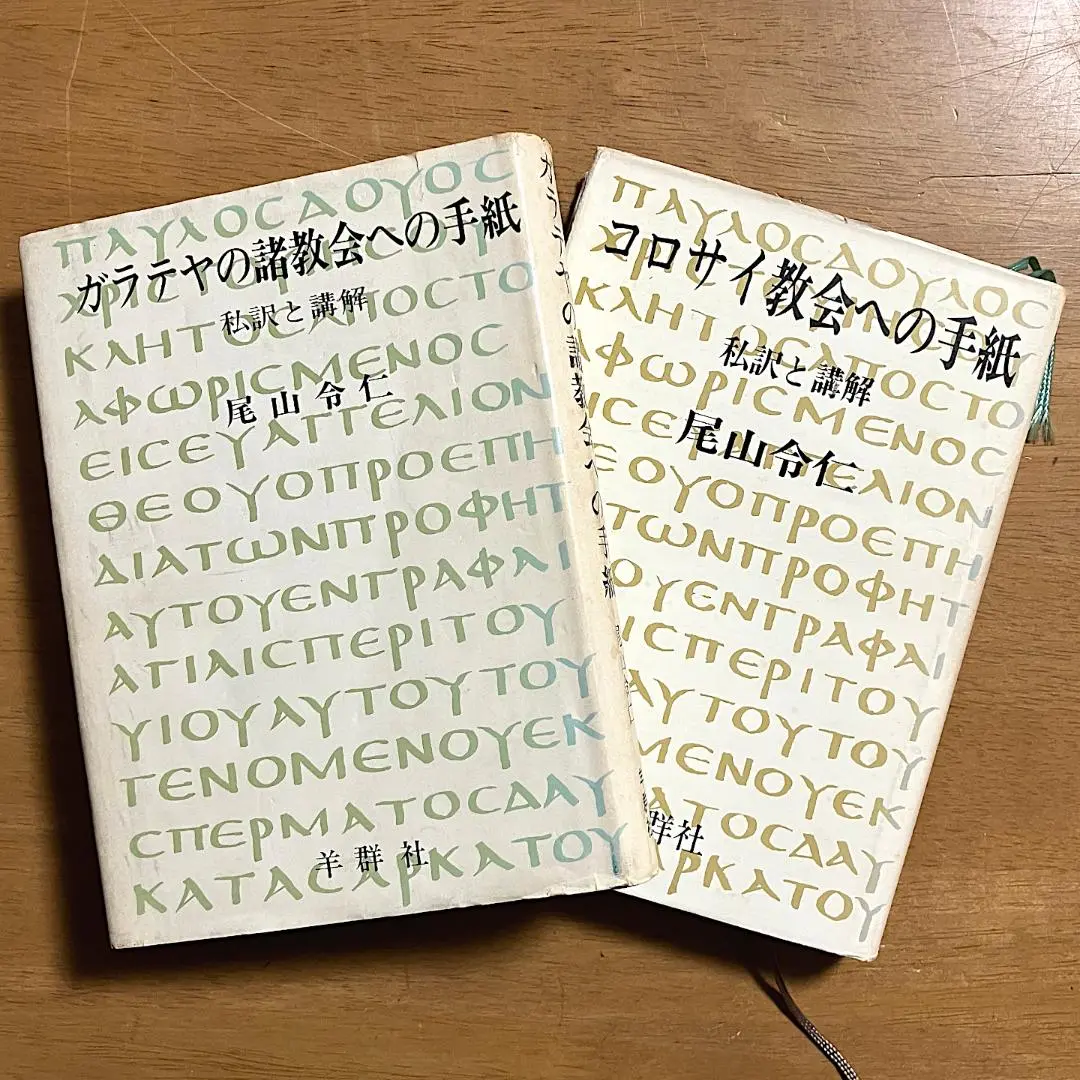 ΠΑΥΛΟCΔΟΥΟC
ガラテヤの諸教会への手紙
ΚΛΗΤΟCΑΠΟCΤΟ
私訳と講解
ΑΦΩΡΙCΜΕΝΟC
尾山令仁
ΕΙCΕΥΑΓΓΕΛΙΟΝ
ΘΕΟΥΟΠΡΟΕΠΗ
ΔΙΑΤΩΝΠΡΟΦΗΤ
ΑΥΤΟΥΕΝΓΡΑΦΑΙ
ΑΓΙΑΙCΠΕΡΙΤΟΥ
ΥΙΟΥΑΥΤΟΥΤΟΥ
ΓΕΝΟΜΕΝΟΥΕΚ
CΠΕΡΜΑΤΟCΔΑΥ
羊群社
ΚΑΤΑCΑΡΚΑΤΟΥ
ガラテヤの諸教会への手紙
ΠΑΥΛΟCΔΟΥΛΟC
コロサイ教会への手紙
ΚΛΗΤΟCΑΠΟCΤΟ
私訳と講解
ΑΦΩΡΙCΜΕΝΟC
尾山令仁
ΕΟΥΟΠΡΟΕΠΗ
ΤΩΝΠΡΟΦΗΤ
ΟΥΕΝΓΡΑΦΑΙ
ΙCΠΕΡΙΤΟΥ
ΑΥΤΟΥΤΟΥ
ΜΕΝΟΥΕΚ
ΑΤΟCΔΑΥ
群社
ΑΡΚΑΤΟΥ